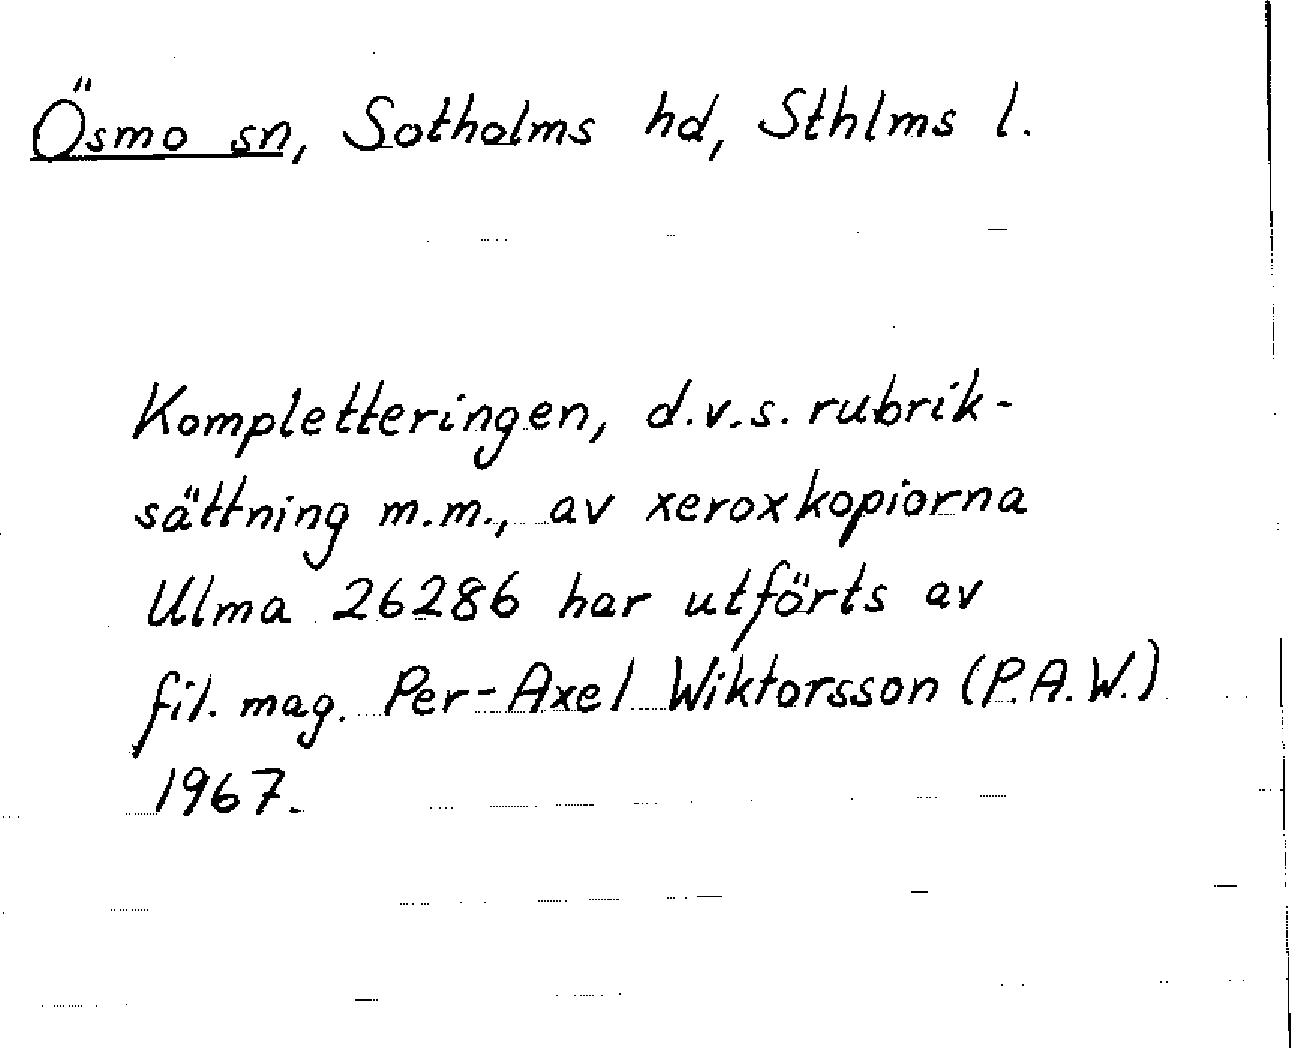 Ösmo sn, Sotholms hd, Sthlms l.
Kompletteringen, d.v.s. rubrik-
sättning m.m., av xeroxkopiorna
Ulma 26286 har utförts av
fil. mag. Per-Axel Wiktorsson (P.A.W.)
1967.